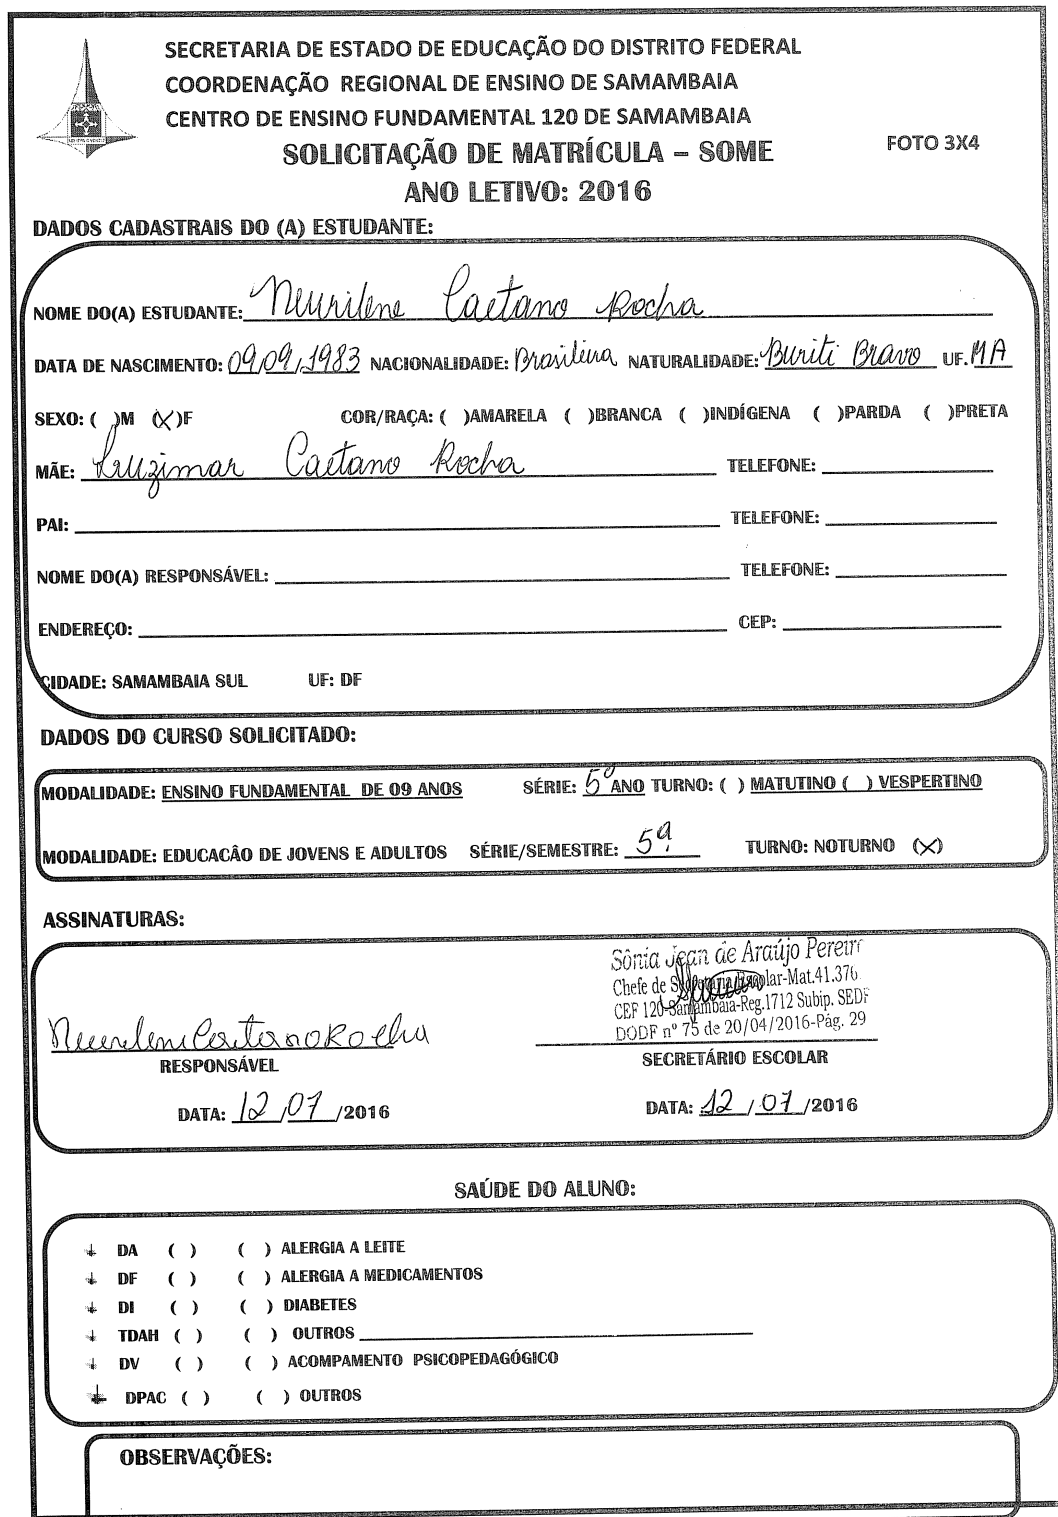 SECRETARIA DE ESTADO DE EDUCAÇÃO DO DISTRITO FEDERAL
COORDENAÇÃO REGIONAL DE ENSINO DE SAMAMBAIA
CENTRO DE ENSINO FUNDAMENTAL 120 DE SAMAMBAIA
FOTO 3X4
SOLICITAÇÃO DE MATRÍCULA – SOME
ANO LETIVO: 2016
DADOS CADASTRAIS DO (A) ESTUDANTE:
NOME DO(A) ESTUDANTE: Neurilene Caetano Rocha
DATA DE NASCIMENTO: 09/09/1983 NACIONALIDADE: Brasileira NATURALIDADE: Buriti Bravo UF. MA
SEXO: ( )M (X)F COR/RAÇA: ( )AMARELA ( )BRANCA ( )INDÍGENA ( )PARDA ( )PRETA
MÃE: Luzimar Caetano Rocha TELEFONE:
PAI: TELEFONE:
NOME DO(A) RESPONSÁVEL: TELEFONE:
ENDEREÇO: CEP:
CIDADE: SAMAMBAIA SUL UF: DF
DADOS DO CURSO SOLICITADO:
MODALIDADE: ENSINO FUNDAMENTAL DE 09 ANOS SÉRIE: 5º ANO TURNO: ( ) MATUTINO ( ) VESPERTINO
MODALIDADE: EDUCACÂO DE JOVENS E ADULTOS SÉRIE/SEMESTRE: 5ª TURNO: NOTURNO (X)
ASSINATURAS:
Sônia Jean de Araújo Pereir
Chefe de Secretaria Escolar-Mat.41.376
CEF 120-Samambaia-Reg.1712 Subip. SEDF
DODF nº 75 de 20/04/2016-Pág. 29
Neurilene Caetano Rocha
RESPONSÁVEL SECRETÁRIO ESCOLAR
DATA: 12/07/2016 DATA: 12/07/2016
SAÚDE DO ALUNO:
DA ( ) ( ) ALERGIA A LEITE
DF ( ) ( ) ALERGIA A MEDICAMENTOS
DI ( ) ( ) DIABETES
TDAH ( ) ( ) OUTROS
DV ( ) ( ) ACOMPAMENTO PSICOPEDAGÓGICO
DPAC ( ) ( ) OUTROS
OBSERVAÇÕES: